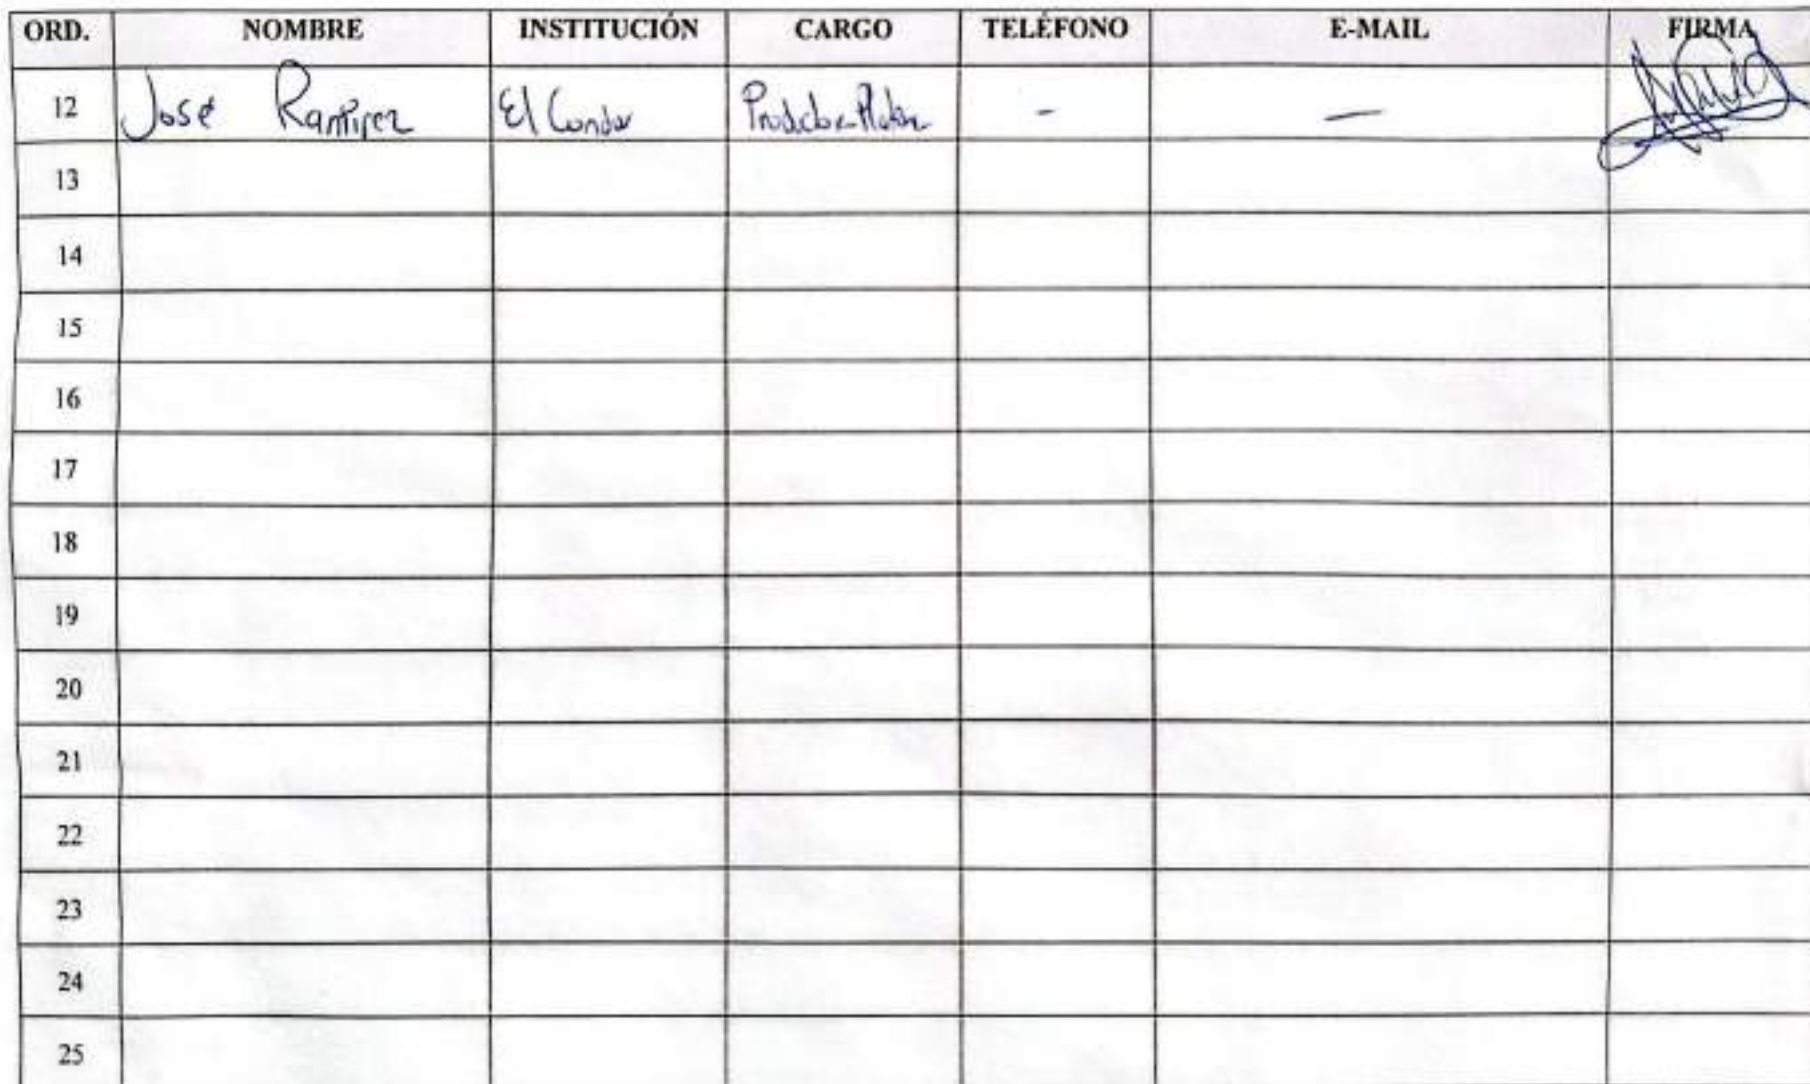 ORD. NOMBRE INSTITUCIÓN CARGO TELÉFONO E-MAIL FIRMA
12 José Ramírez El Condor - —
13
14
15
16
17
18
19
20
21
22
23
24
25